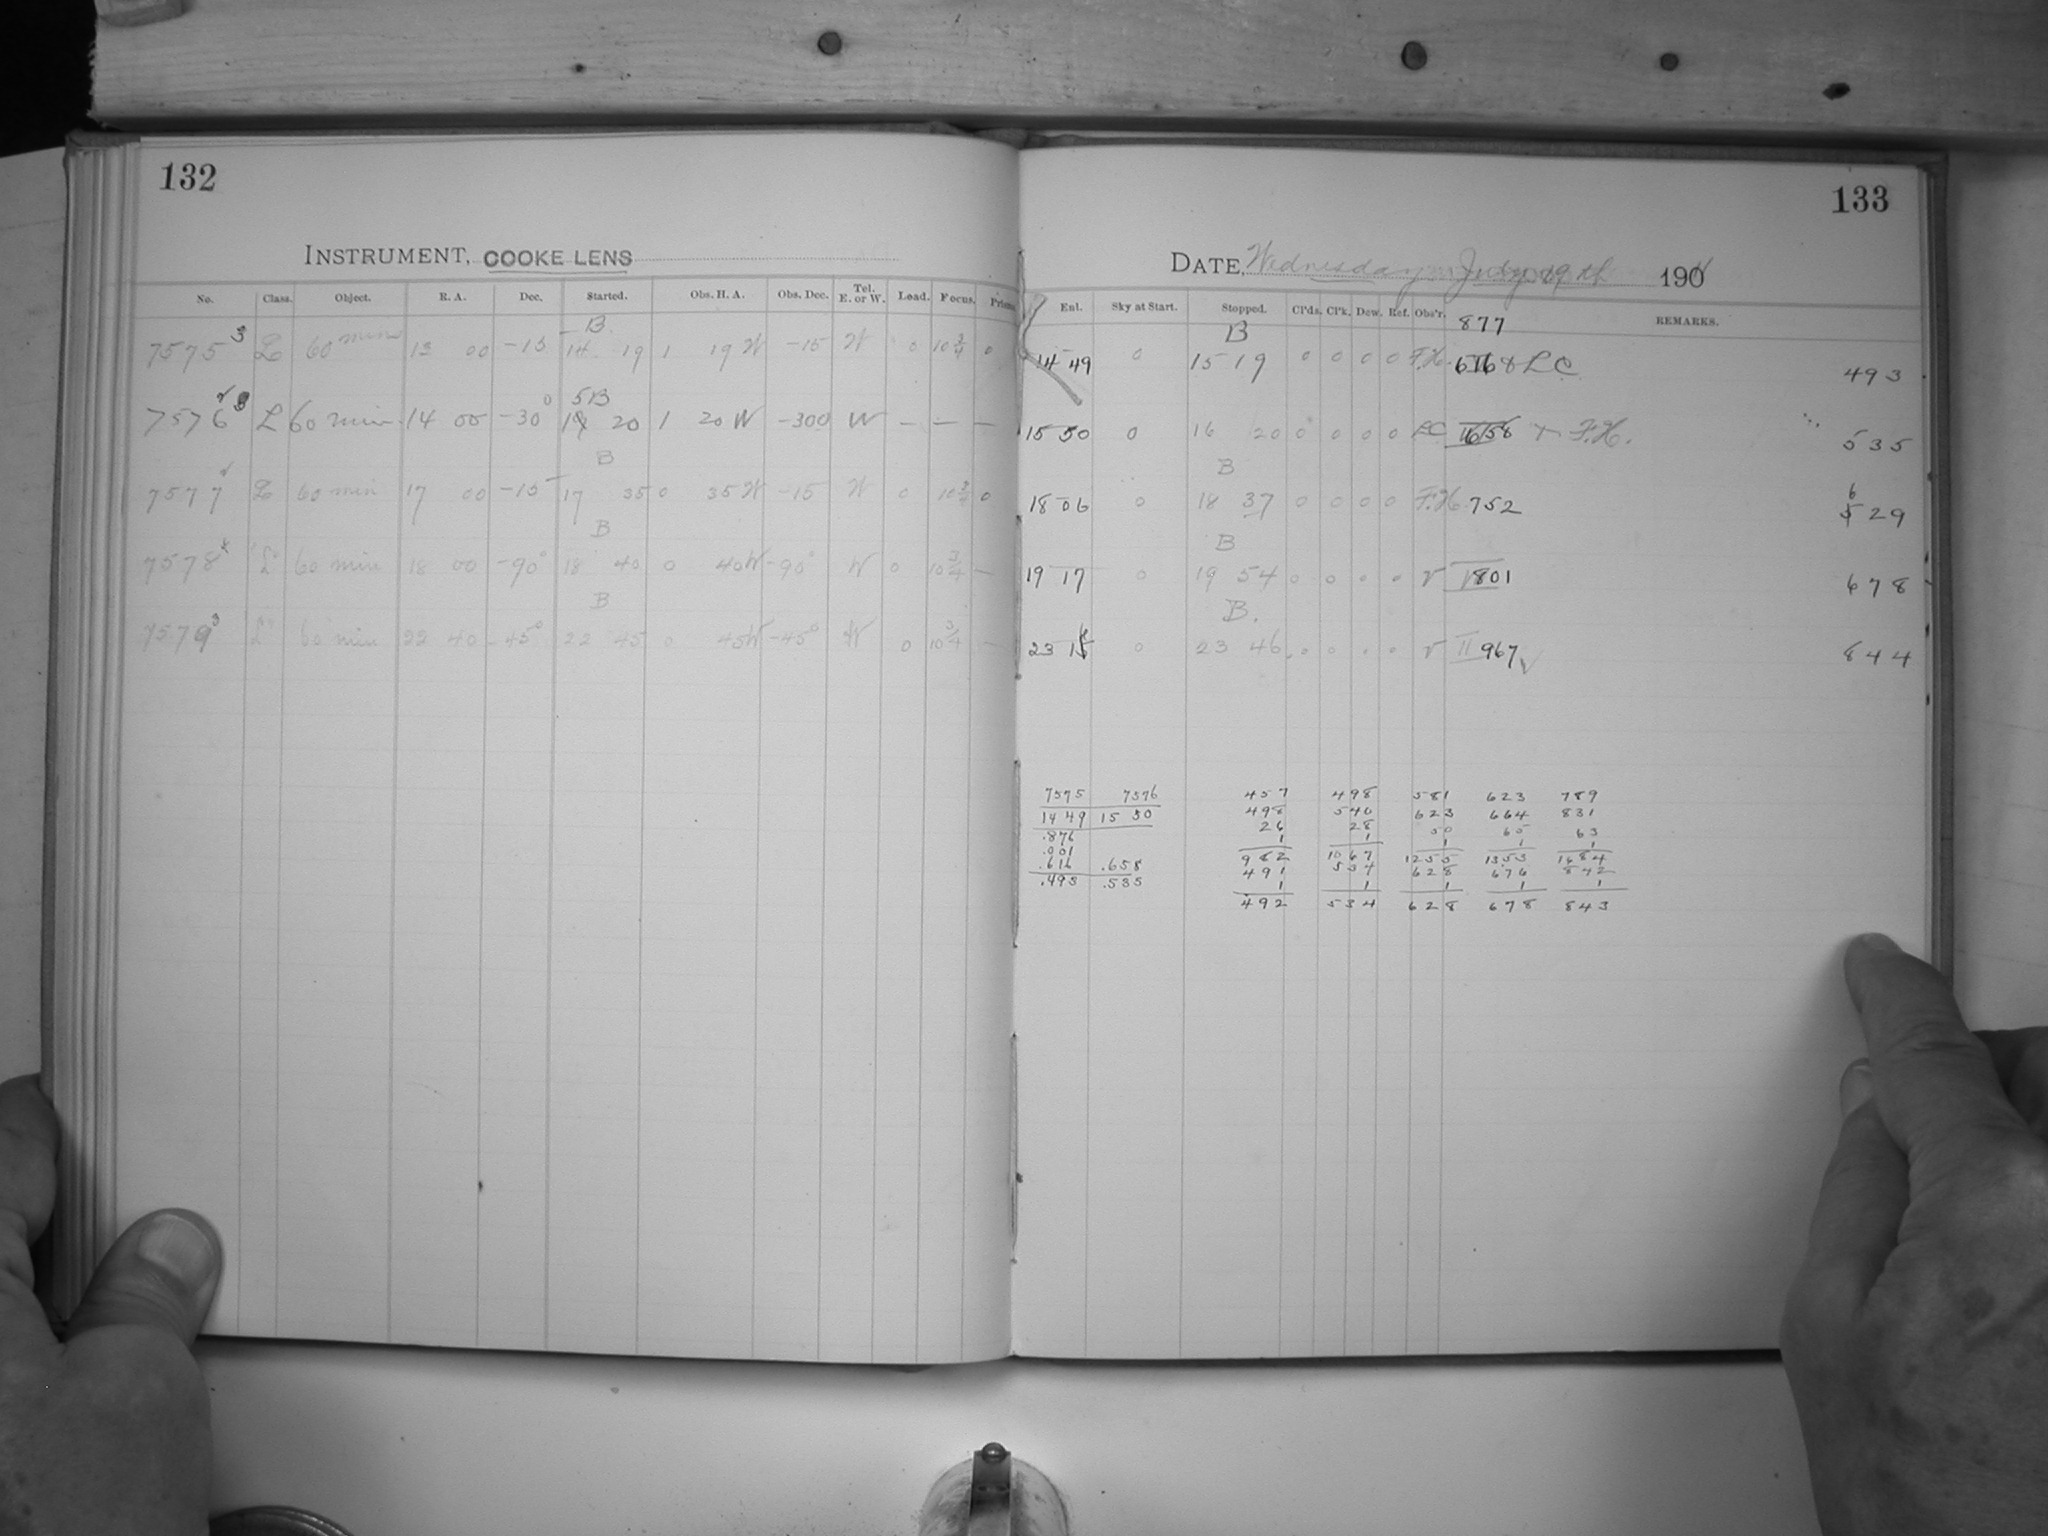 132
INSTRUMENT, COOKE LENS
No. Class. Object. R. A. Dec. Started. Obs. H. A. Obs. Dec. Tel. E. or W. Load. Focus.
B.
7575 3 L 60 mins 13 00 -15 14 19 1 19 W -15 W 0 10 3/4 0
5B
7576 L 60 min 14 00 -30° 20 1 20 W -300 W — — —
B
7577 L 60 min 17 00 -15 17 35 0 35 W -15 W 0 10 3/4 0
B
7578 L 60 min 18 00 -90° 18 40 0 40 W -90° W 0 10 3/4 —
B
7579 3 L 60 min 22 40 -45° 22 45 0 45 W -45° W 0 10 3/4 —
133
DATE, Wednesday July 19th 190
Enl. Sky at Start. Stopped. Cl'ds. Cl'k. Dew. Ref. Obs'r. REMARKS.
B 877
14 49 0 15 19 0 0 0 0 F.H. LC 493
15 50 0 16 20 0 0 0 0 LC 658 F.H. 535
B
18 06 0 18 37 0 0 0 0 F.H. 752 6 29
B
19 17 0 19 54 0 0 0 0 801 678
B.
23 0 23 46 0 0 0 0 II 967 844
7575 7576 457 498 581 623 789
14 49 15 50 498 540 623 664 831
.876 26 28 50 65 63
.001 1 1 1 1 1
.616 .658 982 1067 1255 1353 1684
491 534 628 676 842
.493 .535 1 1 1 1 1
492 534 628 678 843